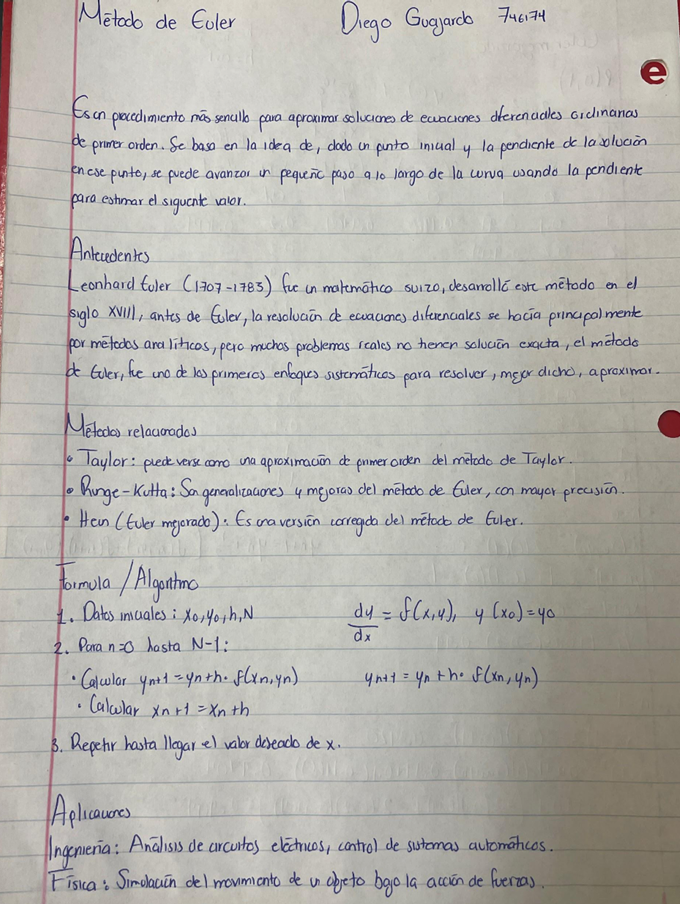 Método de Euler Diego Guajardo 746174
e
Es un procedimiento más sencillo para aproximar soluciones de ecuaciones diferenciales ordinarias
de primer orden. Se basa en la idea de, dado un punto inicial y la pendiente de la solución
en ese punto, se puede avanzar un pequeño paso a lo largo de la curva usando la pendiente
para estimar el siguiente valor.
Antecedentes
Leonhard Euler (1707-1783) fue un matemático suizo, desarrolló este método en el
siglo XVIII, antes de Euler, la resolución de ecuaciones diferenciales se hacía principalmente
por métodos analíticos, pero muchos problemas reales no tienen solución exacta, el método
de Euler, fue uno de los primeros enfoques sistemáticos para resolver, mejor dicho, aproximar.
Métodos relacionados
• Taylor: puede verse como una aproximación de primer orden del método de Taylor.
• Runge-Kutta: Son generalizaciones y mejoras del método de Euler, con mayor precisión.
• Heun (Euler mejorado): Es una versión corregida del método de Euler.
Formula / Algoritmo
1. Datos iniciales: x0, y0, h, N dy/dx = f(x,y), y(x0)=y0
2. Para n=0 hasta N-1:
• Calcular yn+1 = yn+h· f(xn,yn) yn+1 = yn + h· f(xn,yn)
• Calcular xn+1 = xn+h
3. Repetir hasta llegar el valor deseado de x.
Aplicaciones
Ingeniería: Análisis de circuitos eléctricos, control de sistemas automáticos.
Física: Simulación del movimiento de un objeto bajo la acción de fuerzas.